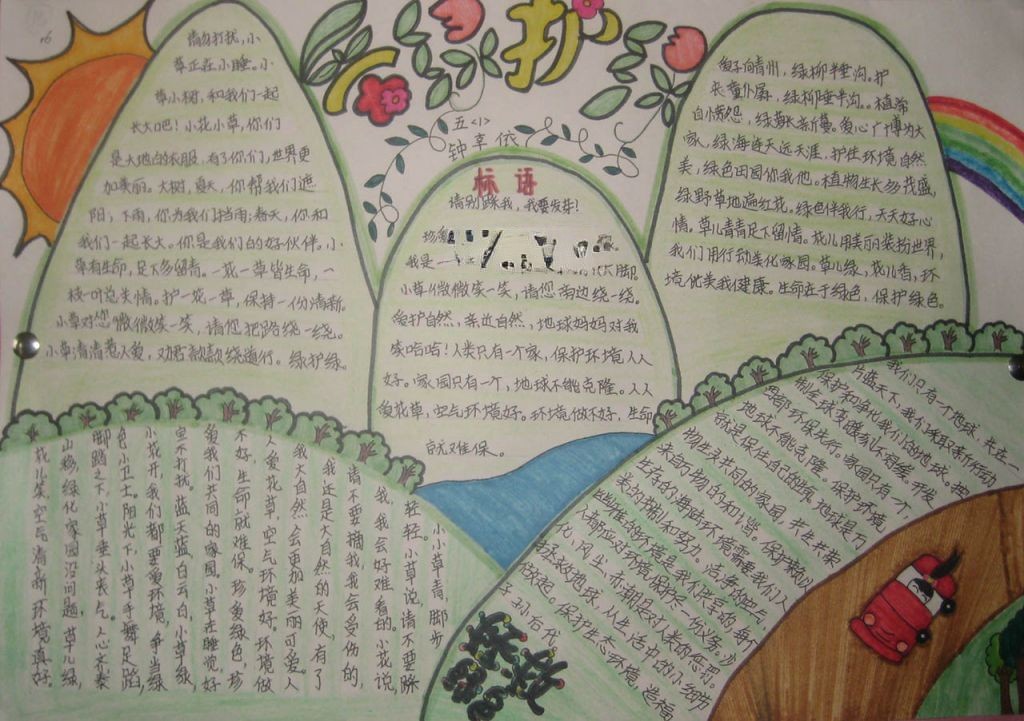 护
五<1>
钟享依
请勿打扰，小
草正在小睡。小
草小树，和我们一起
长大吧！小花小草，你们
是大地的衣服，有了你们，世界更
加美丽。大树，夏天，你帮我们遮
阳，下雨，你为我们挡雨；春天，你和
我们一起长大。你是我们的好伙伴。小
草有生命，足下多留情。一花一草皆生命，一
枝一叶总关情。护一花一草，保持一份清新。
小草对您微微笑一笑，请您把路绕一绕。
小草青青惹人爱，劝君款款绕道行。绿护绿。
标语
请别踩我，我要发芽！
我是一
脚
小草微微笑一笑，请您旁边绕一绕。
爱护自然，亲近自然，地球妈妈对我
笑哈哈！人类只有一个家，保护环境人人
好。家园只有一个，地球不能克隆。人人
爱花草，空气环境好。环境做不好，生命
就难保。
绿柳半垂沟。护
绿柳垂半沟。植帝
爱心广博为大
家，绿海连天远天涯，护住环境自然
美，绿色田园你我他。植物生长多茂盛，
绿野草地遍红花。绿色伴我行，天天好心
情。草儿青青足下留情。花儿用美丽装扮世界，
我们用行动美化家园。草儿绿，花儿香，环
境优美我健康。生命在于绿色，保护绿色。
小小草青，脚步
轻轻。小草说，请不要踩
我，我会好难看的。小花说，
请不要摘我，我会受伤的，
我还是大自然的天使，有了
我大自然会更加美丽可爱。人
人爱花草，空气环境好。环境做
不好，生命就难保。珍爱绿色，珍
爱我们共同的家园。小草在睡觉，好
鱼不打扰。蓝天蓝，白云白，小草绿，
小花开，我们都要爱环境，争当绿
色小卫士。阳光下，小草手舞足蹈，
脚踏之下，小草垂头丧气。人心齐，泰
山移，绿化家园没问题。草儿绿，
花儿笑，空气清新环境真好。
我们只有一个地球，共在一
片蓝天下，我们采取有所行动
保护和净化我们的地球。控
制全球变暖刻不容缓。开发
需要环保先行。家园只有一个，
地球不能克隆。保护环境，
就是保住自己的
地球是万
物生灵共同的家园，共生共荣
来自万物的和谐。洁净的空气，
生存的海陆环境需要我们人
类的节制和努力。保护赖以
优雅的环境是我们共享的，每个
人都应对环境保护尽一份义务。沙
化，风尘，赤潮是对人类的惩罚。
拯救地球，从生活中的小细节
做起。保护生态环境，造福
子孙后代。